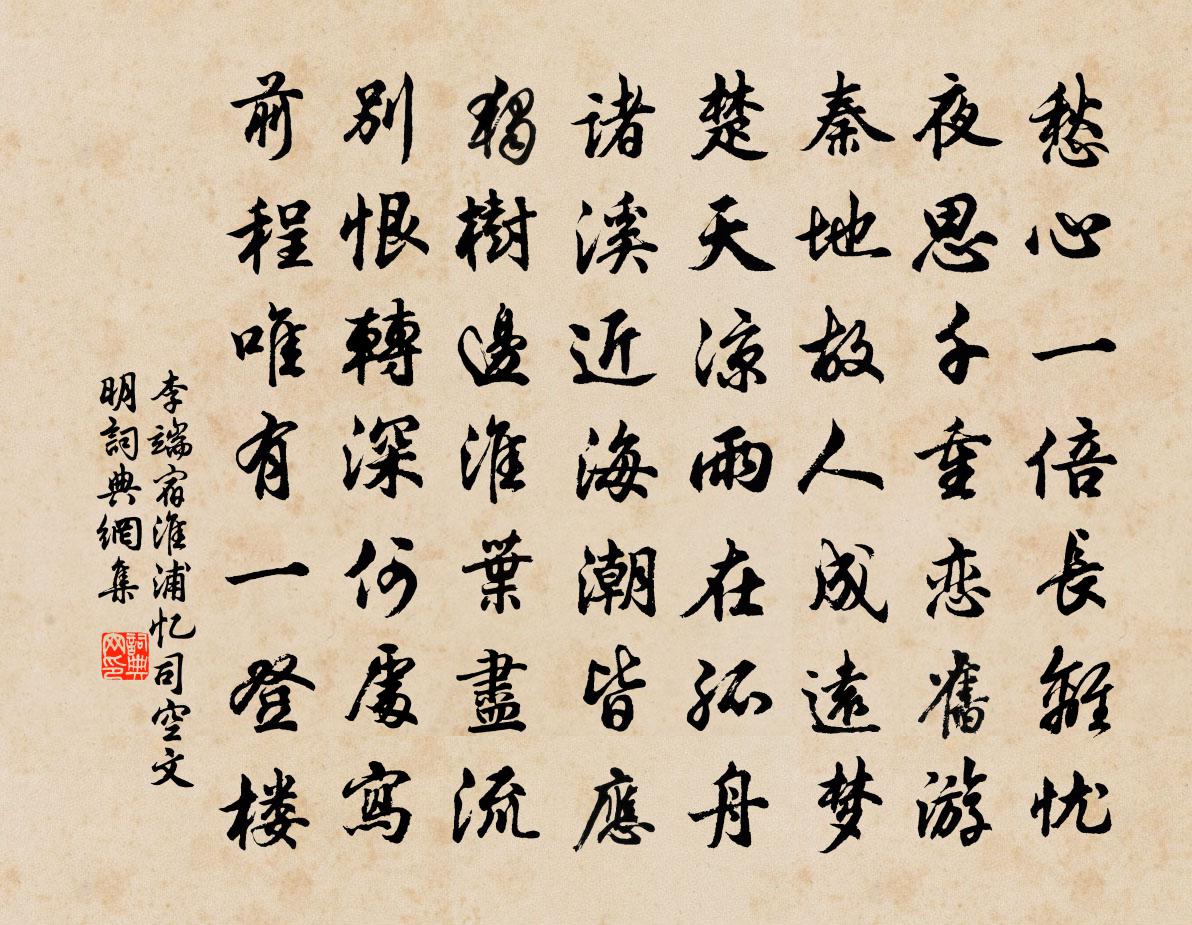 愁心一倍長離忧
夜思千重恋舊游
秦地故人成遠梦
楚天涼雨在孤舟
诸溪近海潮皆應
獨樹邊淮葉盡流
别恨轉深何處寫
前程唯有一登楼
李端宿淮浦忆司空文
明詞典網集
詞典
网印